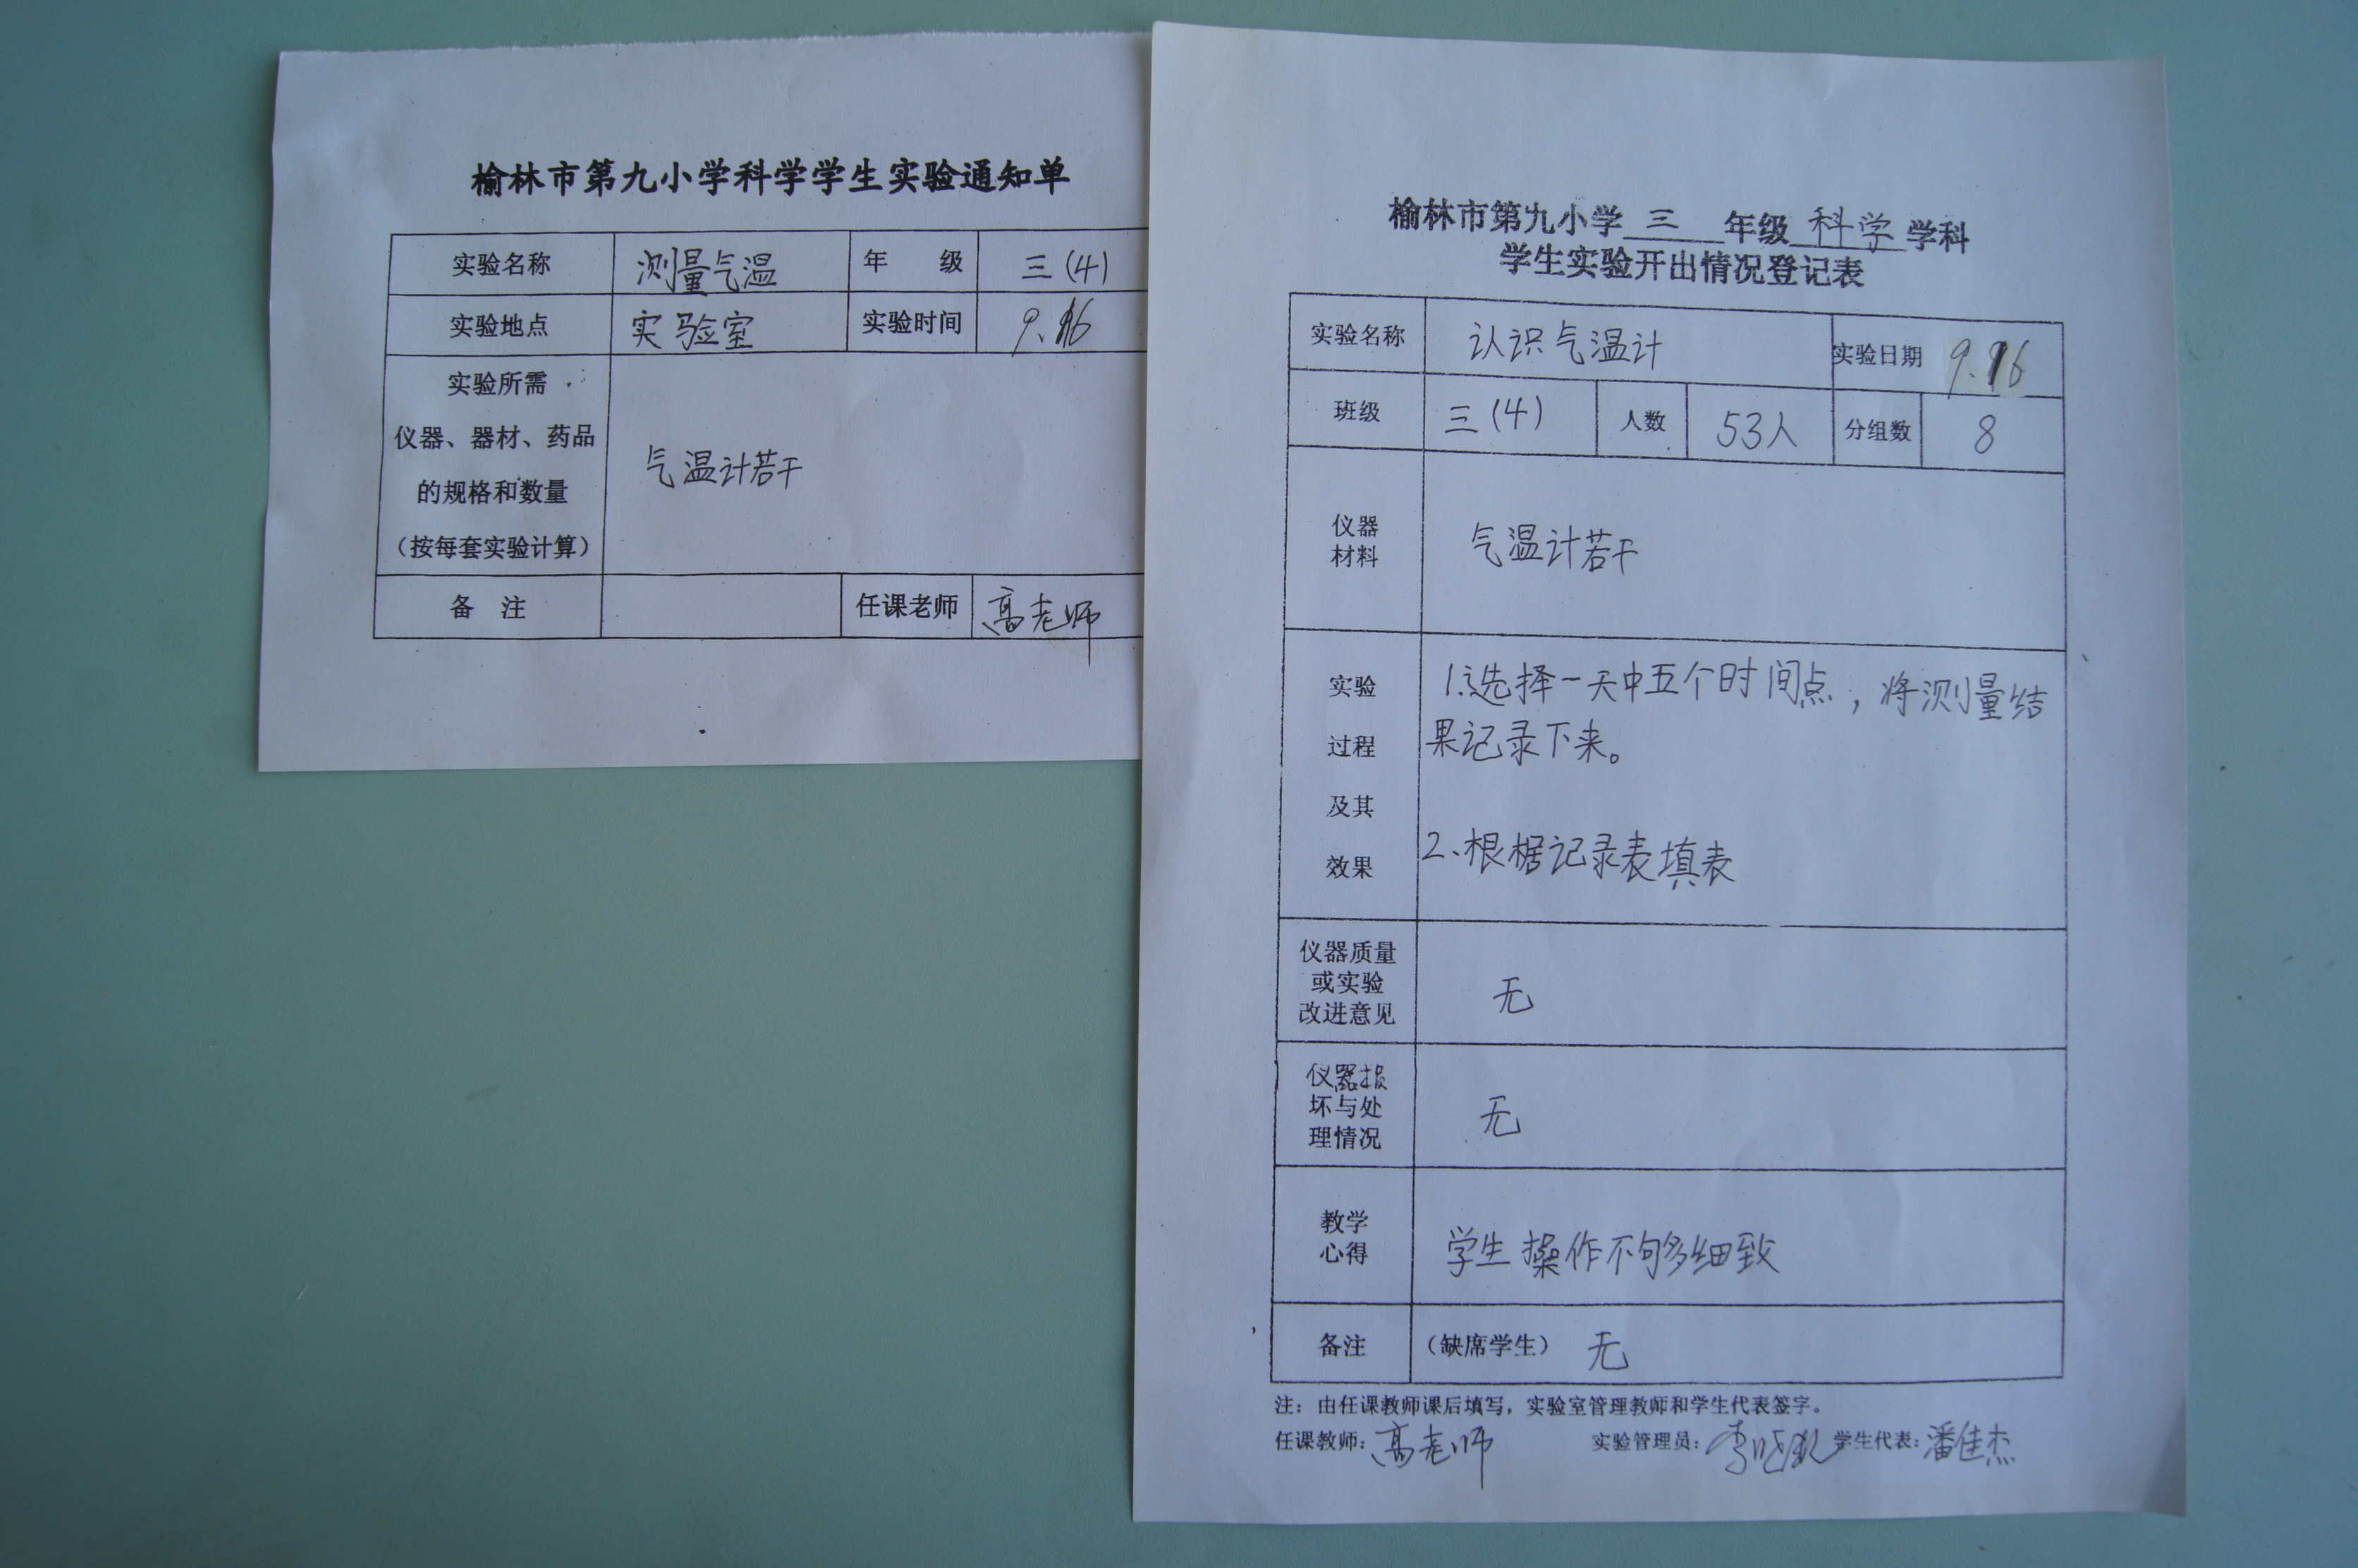 榆林市第九小学科学学生实验通知单
实验名称 测量气温 年 级 三(4)
实验地点 实验室 实验时间 9.16
实验所需
仪器、器材、药品
的规格和数量
（按每套实验计算）
气温计若干
备 注 任课老师 高老师
榆林市第九小学 三 年级 科学 学科
学生实验开出情况登记表
实验名称 认识气温计 实验日期 9.16
班级 三(4) 人数 53人 分组数 8
仪器
材料
气温计若干
实验
过程
及其
效果
1.选择一天中五个时间点，将测量结
果记录下来。
2、根据记录表填表
仪器质量
或实验
改进意见
无
仪器损
坏与处
理情况
无
教学
心得
学生操作不够细致
备注 （缺席学生） 无
注：由任课教师课后填写，实验室管理教师和学生代表签字。
任课教师：高老师 实验管理员： 学生代表：潘佳杰